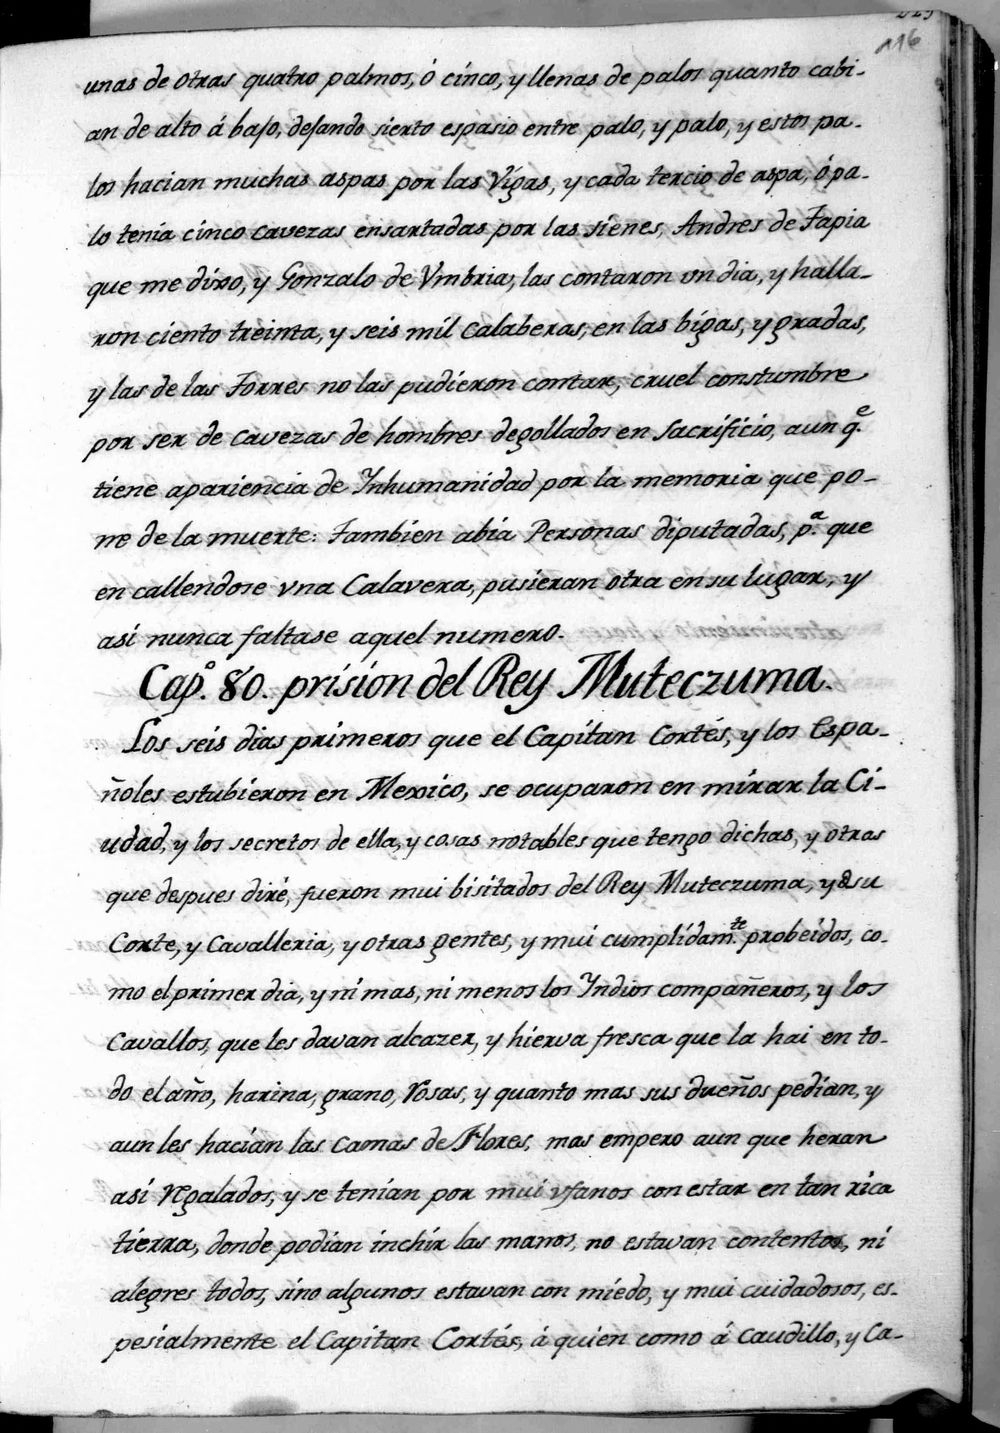 116
unas de otras quatro palmos, ó cinco, y llenas de palos quanto cabi-
an de alto á bajo, dejando sierto espasio entre palo, y palo, y estos pa-
los hacian muchas aspas por las Vigas, y cada tercio de aspa, ó pa-
lo tenia cinco cavezas ensartadas por las sienes, Andres de Tapia
que me dixo, y Gonzalo de Vmbria, las contaron un dia, y halla-
ron ciento treinta, y seis mil calaberas, en las bigas, y gradas,
y las de las Torres no las pudieron contar, cruel constumbre
por ser de cavezas de hombres degollados en sacrificio, aun q.e
tiene apariencia de Inhumanidad por la memoria que po-
ne de la muerte: Tambien abia Personas diputadas, p.a que
en callendose vna Calavera, pusieran otra en su lugar, y
asi nunca faltase aquel numero.
Cap.o 80. prision del Rey Muteczuma.
Los seis dias primeros que el Capitan Cortés, y los Espa-
ñoles estubieron en Mexico, se ocuparon en mirar la Ci-
udad, y los secretos de ella, y cosas notables que tengo dichas, y otras
que despues diré, fueron mui bisitados del Rey Muteczuma, y d su
Corte, y Cavalleria, y otras gentes, y mui cumplidam.te probeidos, co-
mo el primer dia, y ni mas, ni menos los Yndios compañeros, y los
Cavallos, que les davan alcazer, y hierva fresca que la hai en to-
do el año, harina, grano, Rosas, y quanto mas sus dueños pedian, y
aun les hacian las camas de Flores, mas empero aun que heran
asi Regalados, y se tenian por mui vfanos con estar en tan rica
tierra, donde podian inchir las manos, no estavan contentos, ni
alegres todos, sino algunos estavan con miedo, y mui cuidadosos, es-
pesialmente el Capitan Cortés, á quien como á caudillo, y Ca-